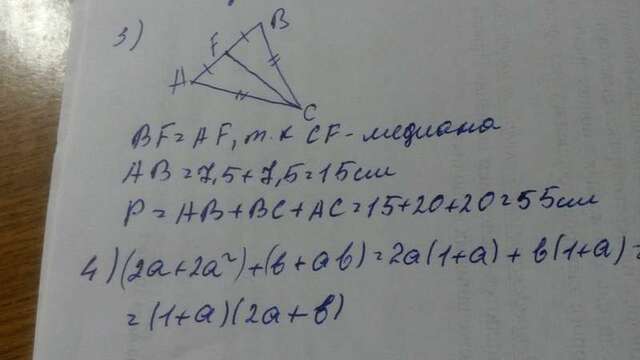 3)
B
F
A
C
BF=AF, т.к CF-медиана
AB=7,5+7,5=15см
P=AB+BC+AC=15+20+20=55см
4)(2a+2a²)+(b+ab)=2a(1+a)+b(1+a)=
=(1+a)(2a+b)